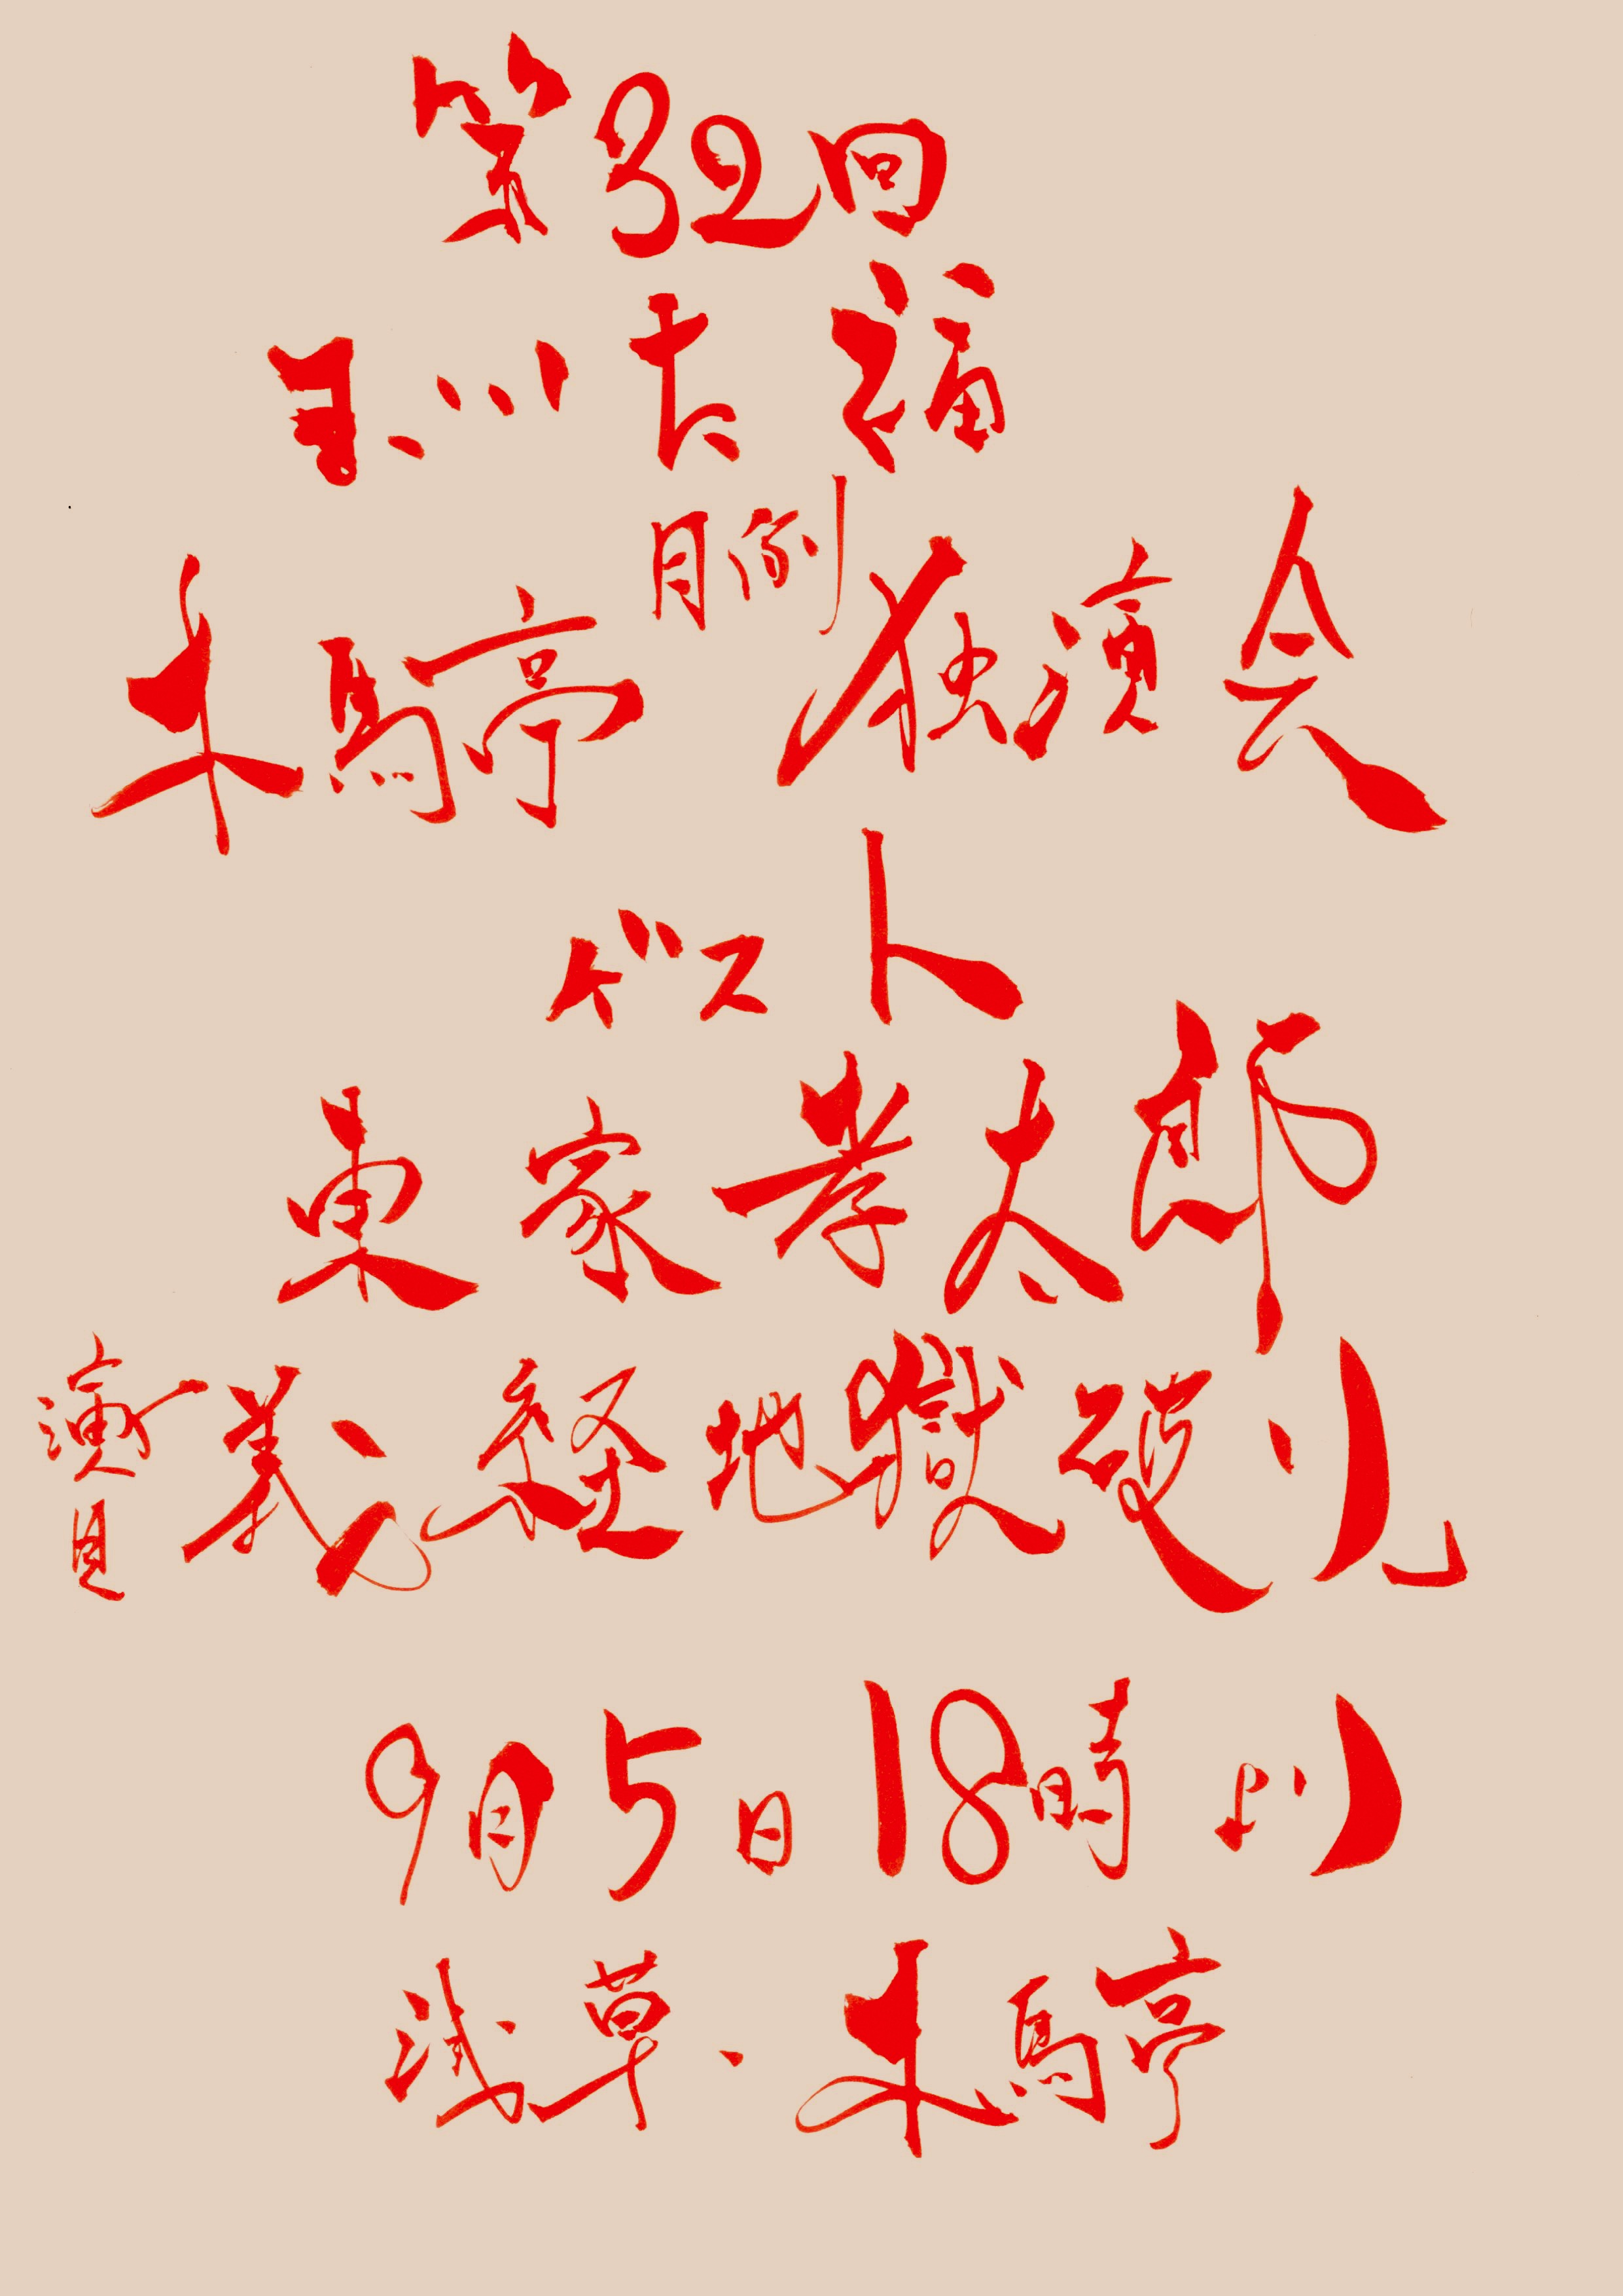 第32回
玉川太福
月例
木馬亭 独演会
ゲスト
東家孝太郎
演目 義経地獄破り
9月5日18時より
浅草・木馬亭